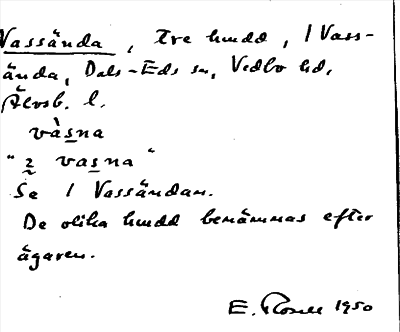 Vassända, Tre hmdd, 1 Vass-
ända, Dals-Eds sn, Vedbo hd,
Älvsb. l.
vàsna
"2 vasna"
Se 1 Vassändan.
De olika hmdd benämnas efter
ägaren.
E. 1950